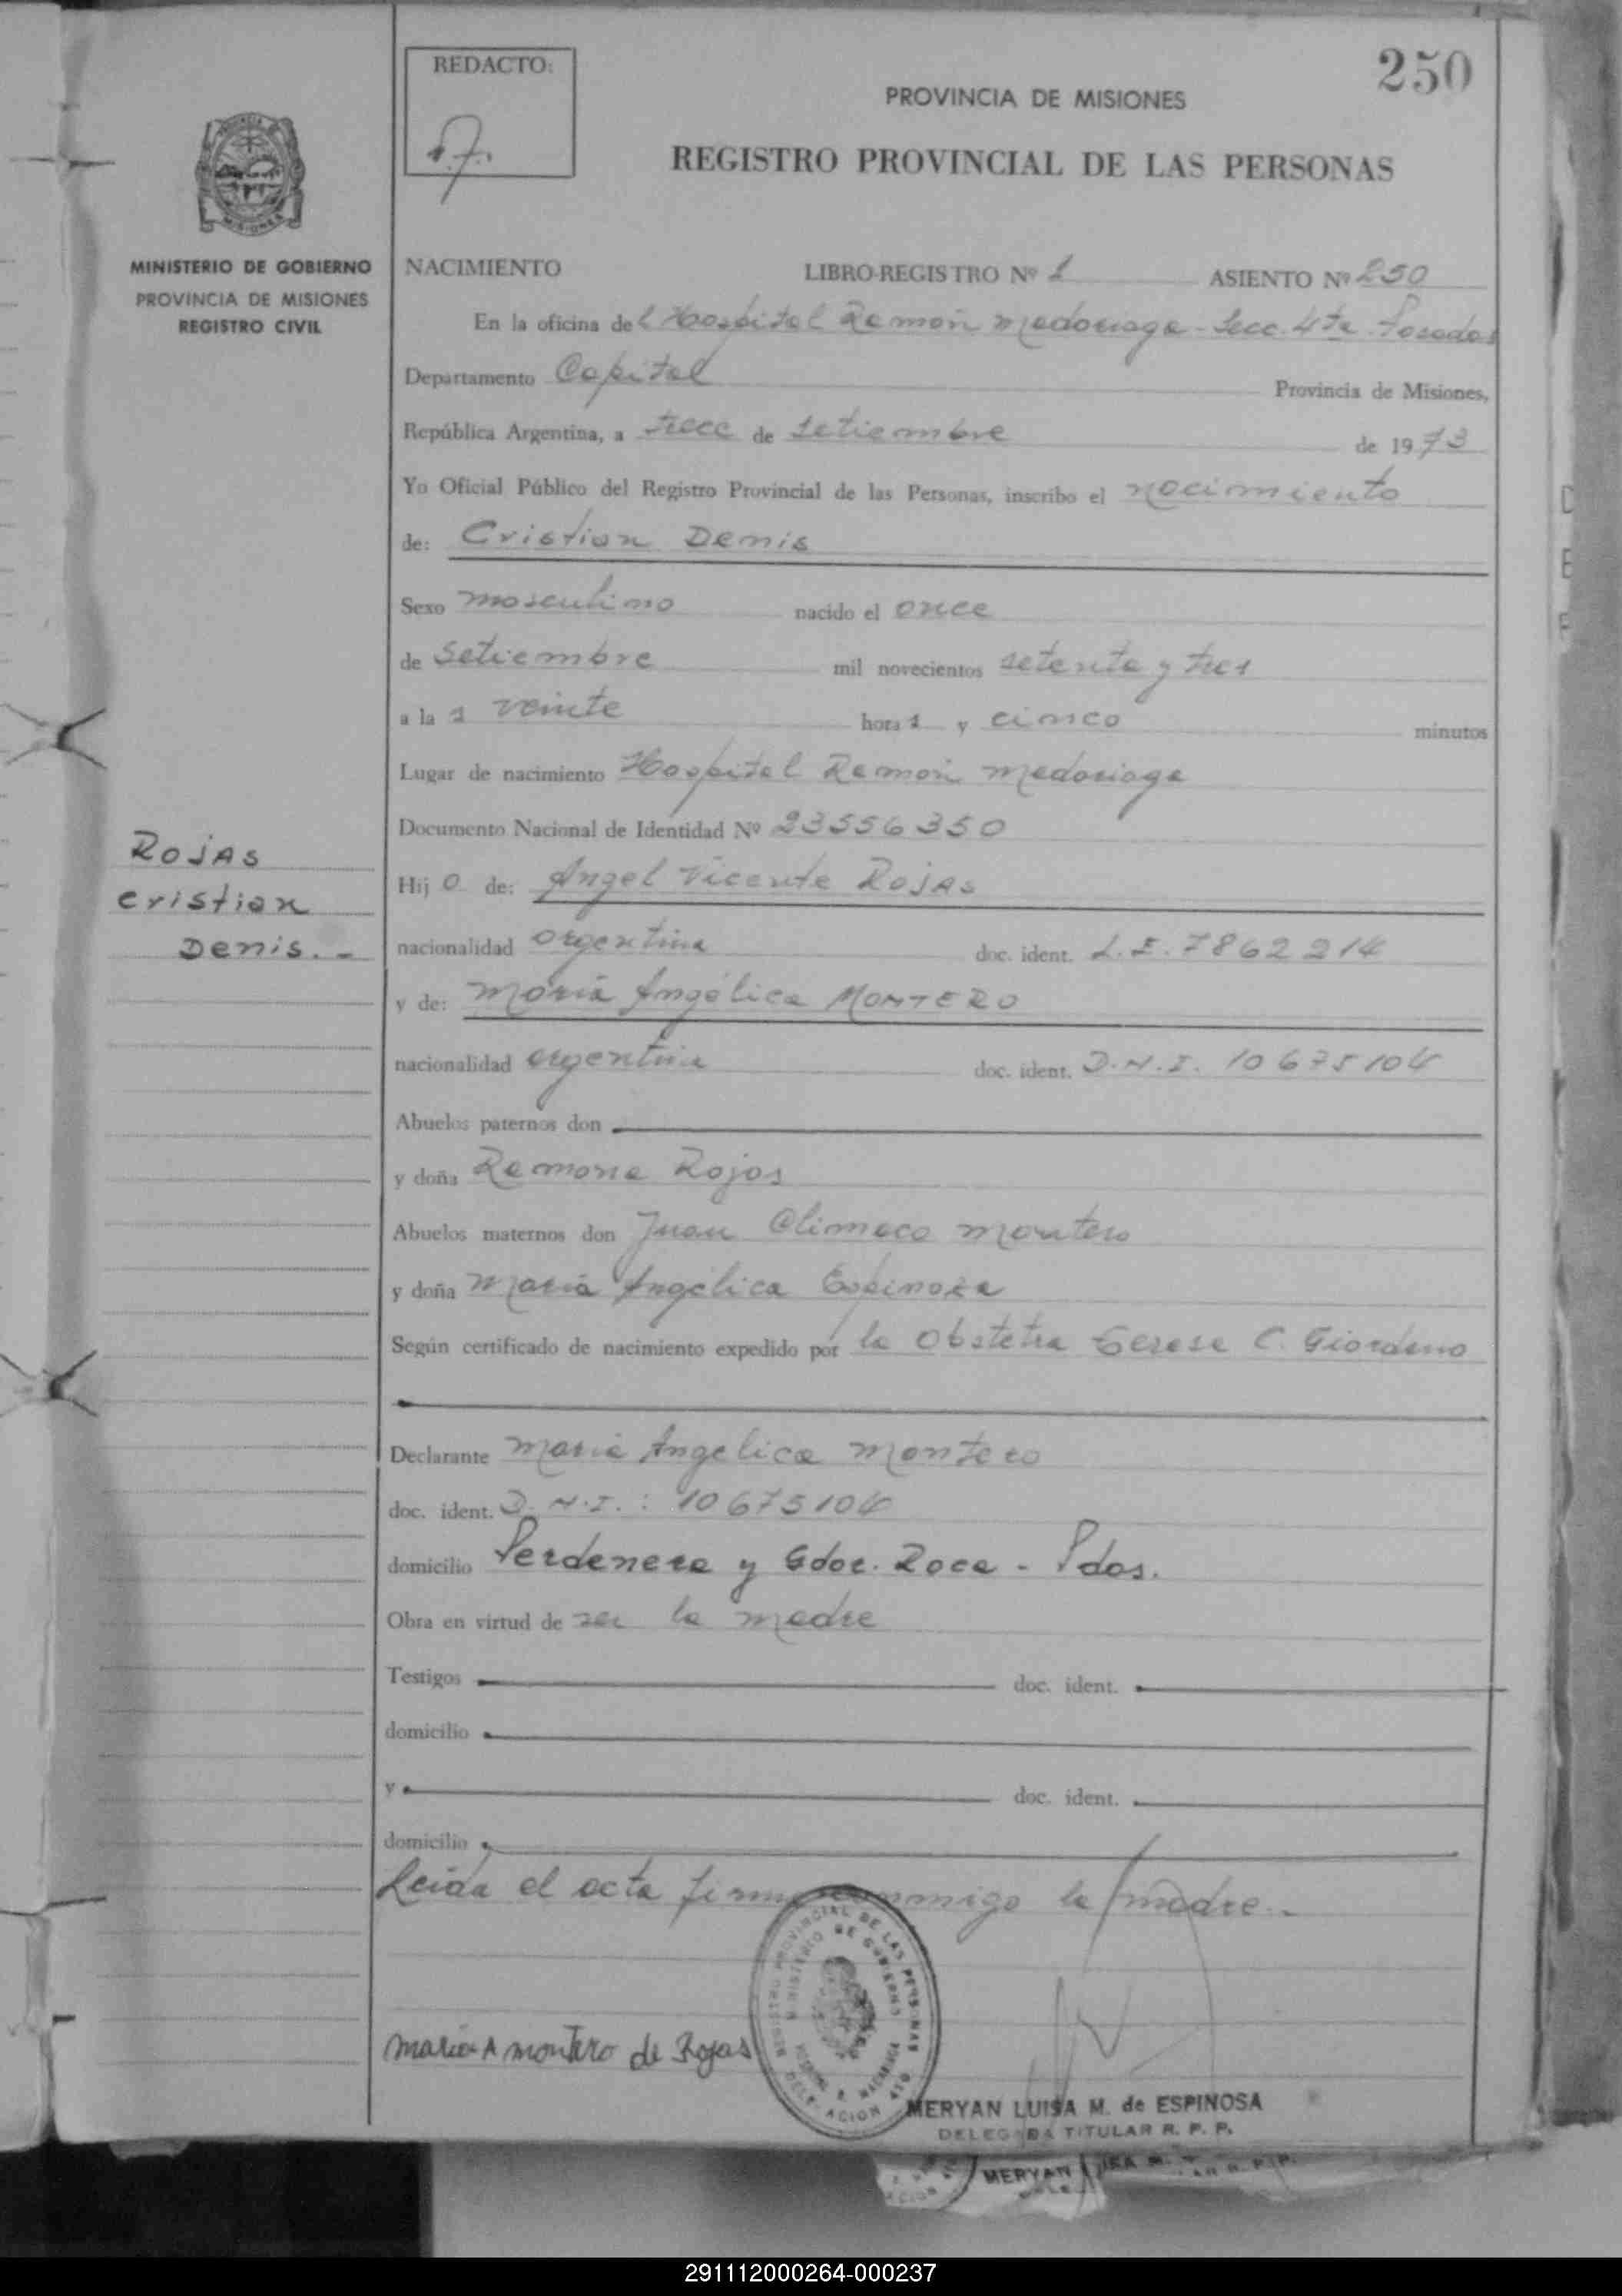 250
REDACTO:
PROVINCIA DE MISIONES
REGISTRO PROVINCIAL DE LAS PERSONAS
MINISTERIO DE GOBIERNO
PROVINCIA DE MISIONES
REGISTRO CIVIL
NACIMIENTO LIBRO-REGISTRO Nº 1 ASIENTO Nº 250
En la oficina del Hospital Ramón Madariaga - Secc. 4ta Posadas
Departamento Capital Provincia de Misiones,
República Argentina, a trece de setiembre de 1973
Yo Oficial Público del Registro Provincial de las Personas, inscribo el nacimiento
de: Cristian Denis
Sexo masculino nacido el once
de setiembre mil novecientos setenta y tres
a las veinte horas y cinco minutos
Lugar de nacimiento Hospital Ramón Madariaga
Documento Nacional de Identidad Nº 23556350
ROJAS
Cristian
Denis.-
Hijo de: Angel Vicente ROJAS
nacionalidad argentina doc. ident. L.E. 7862214
y de: María Angélica MONTERO
nacionalidad argentina doc. ident. D.N.I. 10675104
Abuelos paternos don
y doña Ramona Rojas
Abuelos maternos don Juan Climaco Montero
y doña María Angélica Espinoza
Según certificado de nacimiento expedido por la Obstetra Teresa C. Giordano
Declarante María Angélica Montero
doc. ident. D.N.I.: 10675104
domicilio Perdenera y Gdor. Roca - Pdas.
Obra en virtud de ser la madre
Testigos doc. ident.
domicilio
y doc. ident.
domicilio
Leída el acta firma conmigo la madre.-
REGISTRO PROVINCIAL DE LAS PERSONAS
MINISTERIO DE GOBIERNO
HOSPITAL R. MADARIAGA
DELEGACION 4TA
Maria A Montero de Rojas
MERYAN LUISA M. de ESPINOSA
DELEGADA TITULAR R. P. P.
MERYAN
291112000264-000237